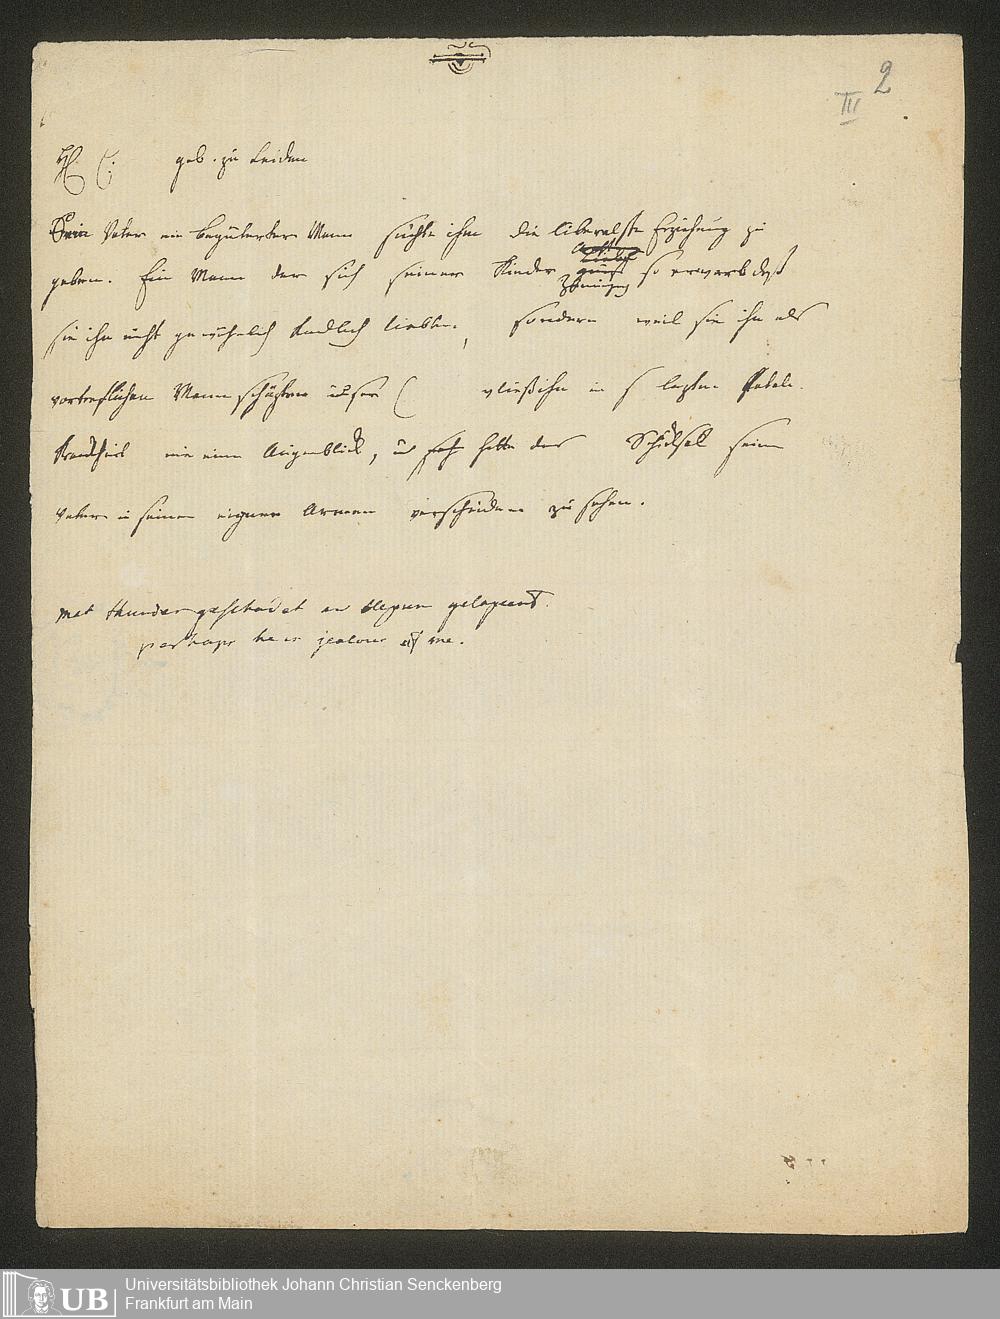 2
III
H. C. geb. zu Leiden
Sein Vater ein begüterter Mann suchte ihm die liberalste Erziehung zu
geben. Ein Mann der sich seiner Kinder so erwarb daß
sie ihn nicht gewöhnlich kindlich liebten, sondern weil sie ihn als
vortreflichen Mann schäzten unser C verließ ihn in s lezten
Krankheit nie einen Augenblick, u hatte das Schicksal seinen
Vater in seinen eignen Armen verscheiden zu sehen.
met thunder
perhaps he is jealous of me.
UB Universitätsbibliothek Johann Christian Senckenberg
Frankfurt am Main